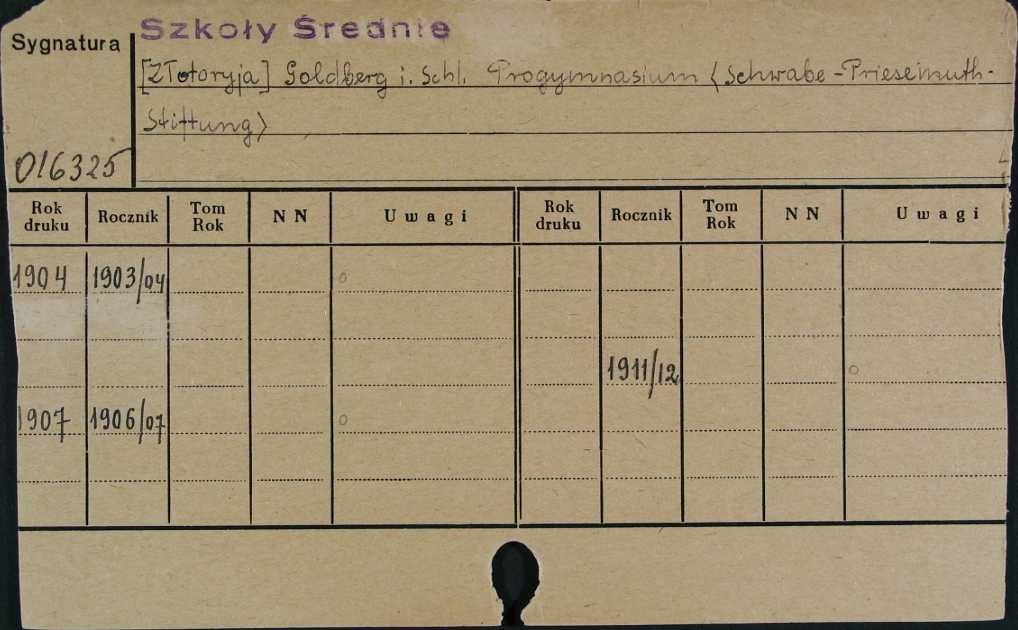 Szkoły Średnie
Sygnatura
[Złotoryja] Goldberg i. Schl. Progymnasium (Schwabe-Priesemuth-
Stiftung)
016325
Rok druku Rocznik Tom Rok NN Uwagi Rok druku Rocznik Tom Rok NN Uwagi
1904 1903/04 o
1911/12 o
1907 1906/07 o